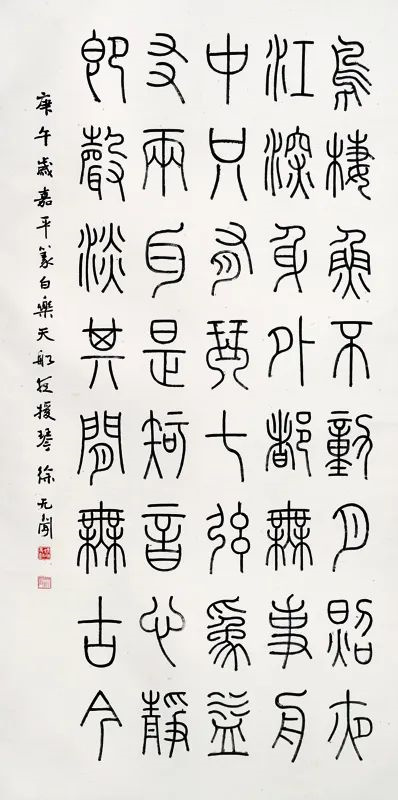 鳥棲魚不動月照夜
江深身外都無事舟
中只有琴七弦爲益
友兩耳是知音心靜
即聲淡其間無古今
庚午歲嘉平篆白樂天船夜援琴徐无聞